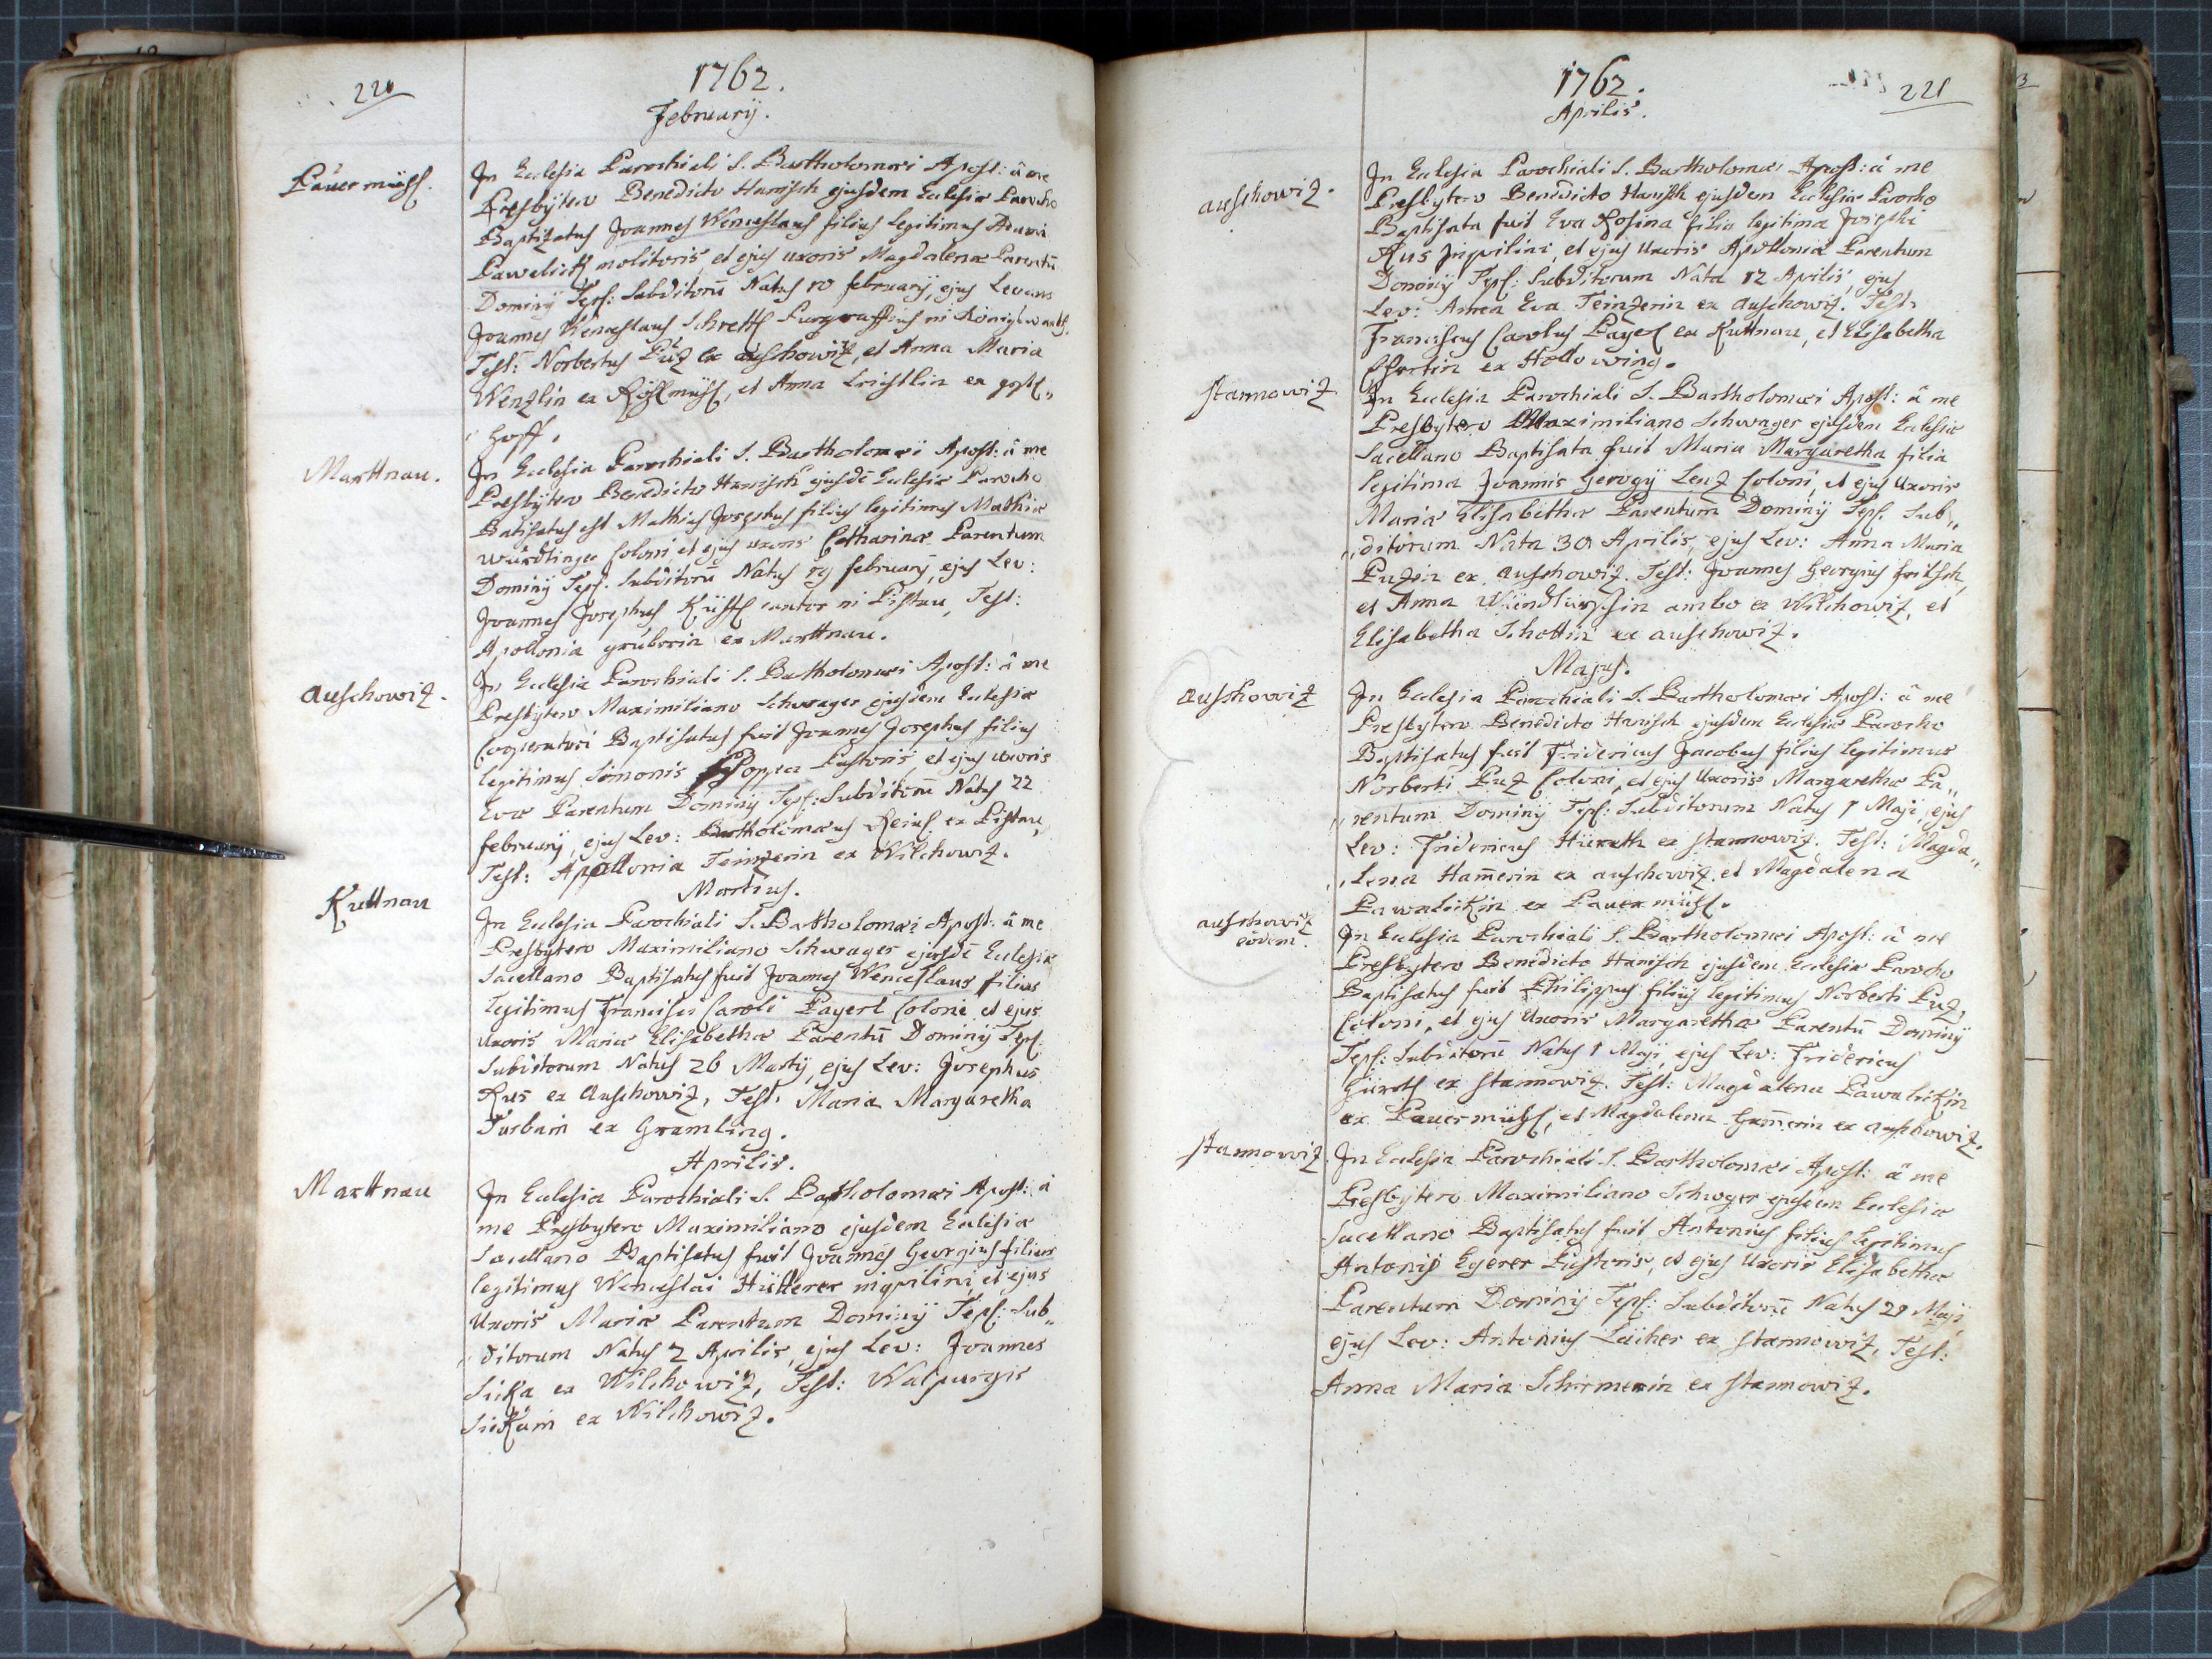 220
1762.
February.
Pauermühl.
In Ecclesia Parochiali S. Bartholomæi Apost: à me
Presbÿtero Benedicto Hanisch ejusdem Ecclesiæ Parocho
Baptizatus Joannes Wenceslaus filius legitimus Adami
Pawelick molitoris, et ejus uxoris Magdalenæ Parentū
Dominÿ Tepl: Subditorū Natus 10 februarÿ, ejus Levans
Joannes Wenceslaus in Königswarth,
Test: Norbertus Puz ex auschowiz, et Anna Maria
Wenzlin ex et Anna ex
Hoff.
Marttnau.
In Ecclesia Parochiali S. Bartholomæi Apost: à me
Presbÿtero Benedicto Hanisch ejusdē Ecclesiæ Parocho
Batisatus est Mathias Josephus filius legitimus Mathiæ
Würdtinger Coloni et ejus uxoris Catharinæ Parentum
Dominÿ Tepl. Subditorū Natus 19 februarÿ, ejus Lev:
Joannes Josephus cantor in Pistau, Test:
Apollonia grüberin ex Marttnau.
auschowiz.
In Ecclesia Parochiali S. Bartholomæi Apost: à me
Presbÿtero Maximiliano Schwager ejusdem Ecclesiæ
Cooperatori Baptisatus fuit Joannes Josephus filius
legitimus Simonis Popper Pastoris, et ejus uxoris
Evæ Parentum Dominÿ Tepl: Subditorū Natus 22
februarÿ, ejus Lev: Bartholomæus ex Pistau,
Test: Apollonia Teinzerin ex Wilchowiz.
Martius.
Kuttnau
In Ecclesia Parochiali S. Bartholomæi Apost: à me
Presbÿtero Maximiliano Schwager ejusdē Ecclesiæ
Sacellano Baptisatus fuit Joannes Wenceslaus filius
legitimus Francisci Caroli Payerl Coloni et ejus
uxoris Mariæ Elisabethæ Parentū Dominÿ Tepl:
Subditorum Natus 26 Martÿ, ejus Lev: Josephus
Kus ex Auschowiz, Test: Maria Margaretha
ex Gramling.
Aprilis.
Marttnau
In Ecclesia Parochiali S. Bartholomæi Apost: à
me Presbytero Maximiliano ejusdem Ecclesiæ
Sacellano Baptisatus fuit Joannes Georgius filius
legitimus Wenceslai Hütterer inquilini, et ejus
Uxoris Mariæ Parentum Dominÿ Tepl: Sub„
„ditorum Natus 2 Aprilis, ejus Lev: Joannes
Sicka ex Wilchowiz, Test: Walpurgis
ex Wilchowiz.
221
1762.
Aprilis.
auschowiz.
In Ecclesia Parochiali S. Bartholomæi Apost: à me
Presbÿtero Benedicto Hanisch ejusdem Ecclesiæ Parocho
Baptisata fuit Eva Rosina filia legitima Josephi
Kus Inquilini, et ejus Uxoris Apolloniæ Parentum
Dominÿ Tepl: Subditorum Nata 12 Aprilis, ejus
Lev: Anna Eva Teinzerin ex auschowiz. Test:
Franciscus Carolus Payerl ex Kuttnau, et Elisabetha
ex Hollowing.
stannowiz
In Ecclesia Parochiali S. Bartholomæi Apost: à me
Presbytero Maximiliano Schwager ejusdem Ecclesiæ
Sacellano Baptisata fuit Maria Margaretha filia
legitima Joannis Georgÿ Lenz Coloni, et ejus Uxoris
Mariæ Elisabethæ Parentum Dominÿ Tepl. Sub„
„ditorum Nata 30 Aprilis, ejus Lev: Anna Maria
Puzin ex auschowiz. Test: Joannes Georgius fritsch,
et Anna ambo ex Wilchowiz, et
Elisabetha Schottin ex auschowiz.
Majus.
auschowiz
In Ecclesia Parochiali S. Bartholomæi Apost: à me
Presbytero Benedicto Hanisch ejusdem Ecclesiæ Parocho
Baptisatus fuit Fridericus Jacobus filius legitimus
Norberti Puz Coloni, et ejus Uxoris Margarethæ Pa„
„rentum Dominÿ Tepl: Subditorum Natus 1 Maji, ejus
Lev: Fridericus ex stannowiz. Test: Magda„
„lena Ham̄erin ex auschowiz, et Magdalena
Pawalickin ex Pauermühl.
auschowiz
eodem.
In Ecclesia Parochiali S. Bartholomæi Apost: à me
Presbÿtero Benedicto Hanisch ejusdem Ecclesiæ Parocho
Baptisatus fuit Philippus filius legitimus Norberti Puz,
Coloni, et ejus Uxoris Margarethæ Parentū Dominÿ
Tepl: Subditorū Natus 1 Maji, ejus Lev: Fridericus
ex stannowiz. Test: Magdalena Pawalickin
ex Pauermühl, et Magdalena Ham̄erin ex auschowiz.
stannowiz.
In Ecclesia Parochiali S. Bartholomæi Apost: à me
Presbÿtero Maximiliano Schwger ejusdem Ecclesiæ
Sacellano Baptisatus fuit Antonius filius legitimus
Antonÿ Egerer Pastoris, et ejus Uxoris Elisabethæ
Parentum Dominÿ Tepl: Subditorū Natus 29 Maji,
ejus Lev: Antonius ex stannowiz, Test:
Anna Maria Schirmerin ex stannowiz.